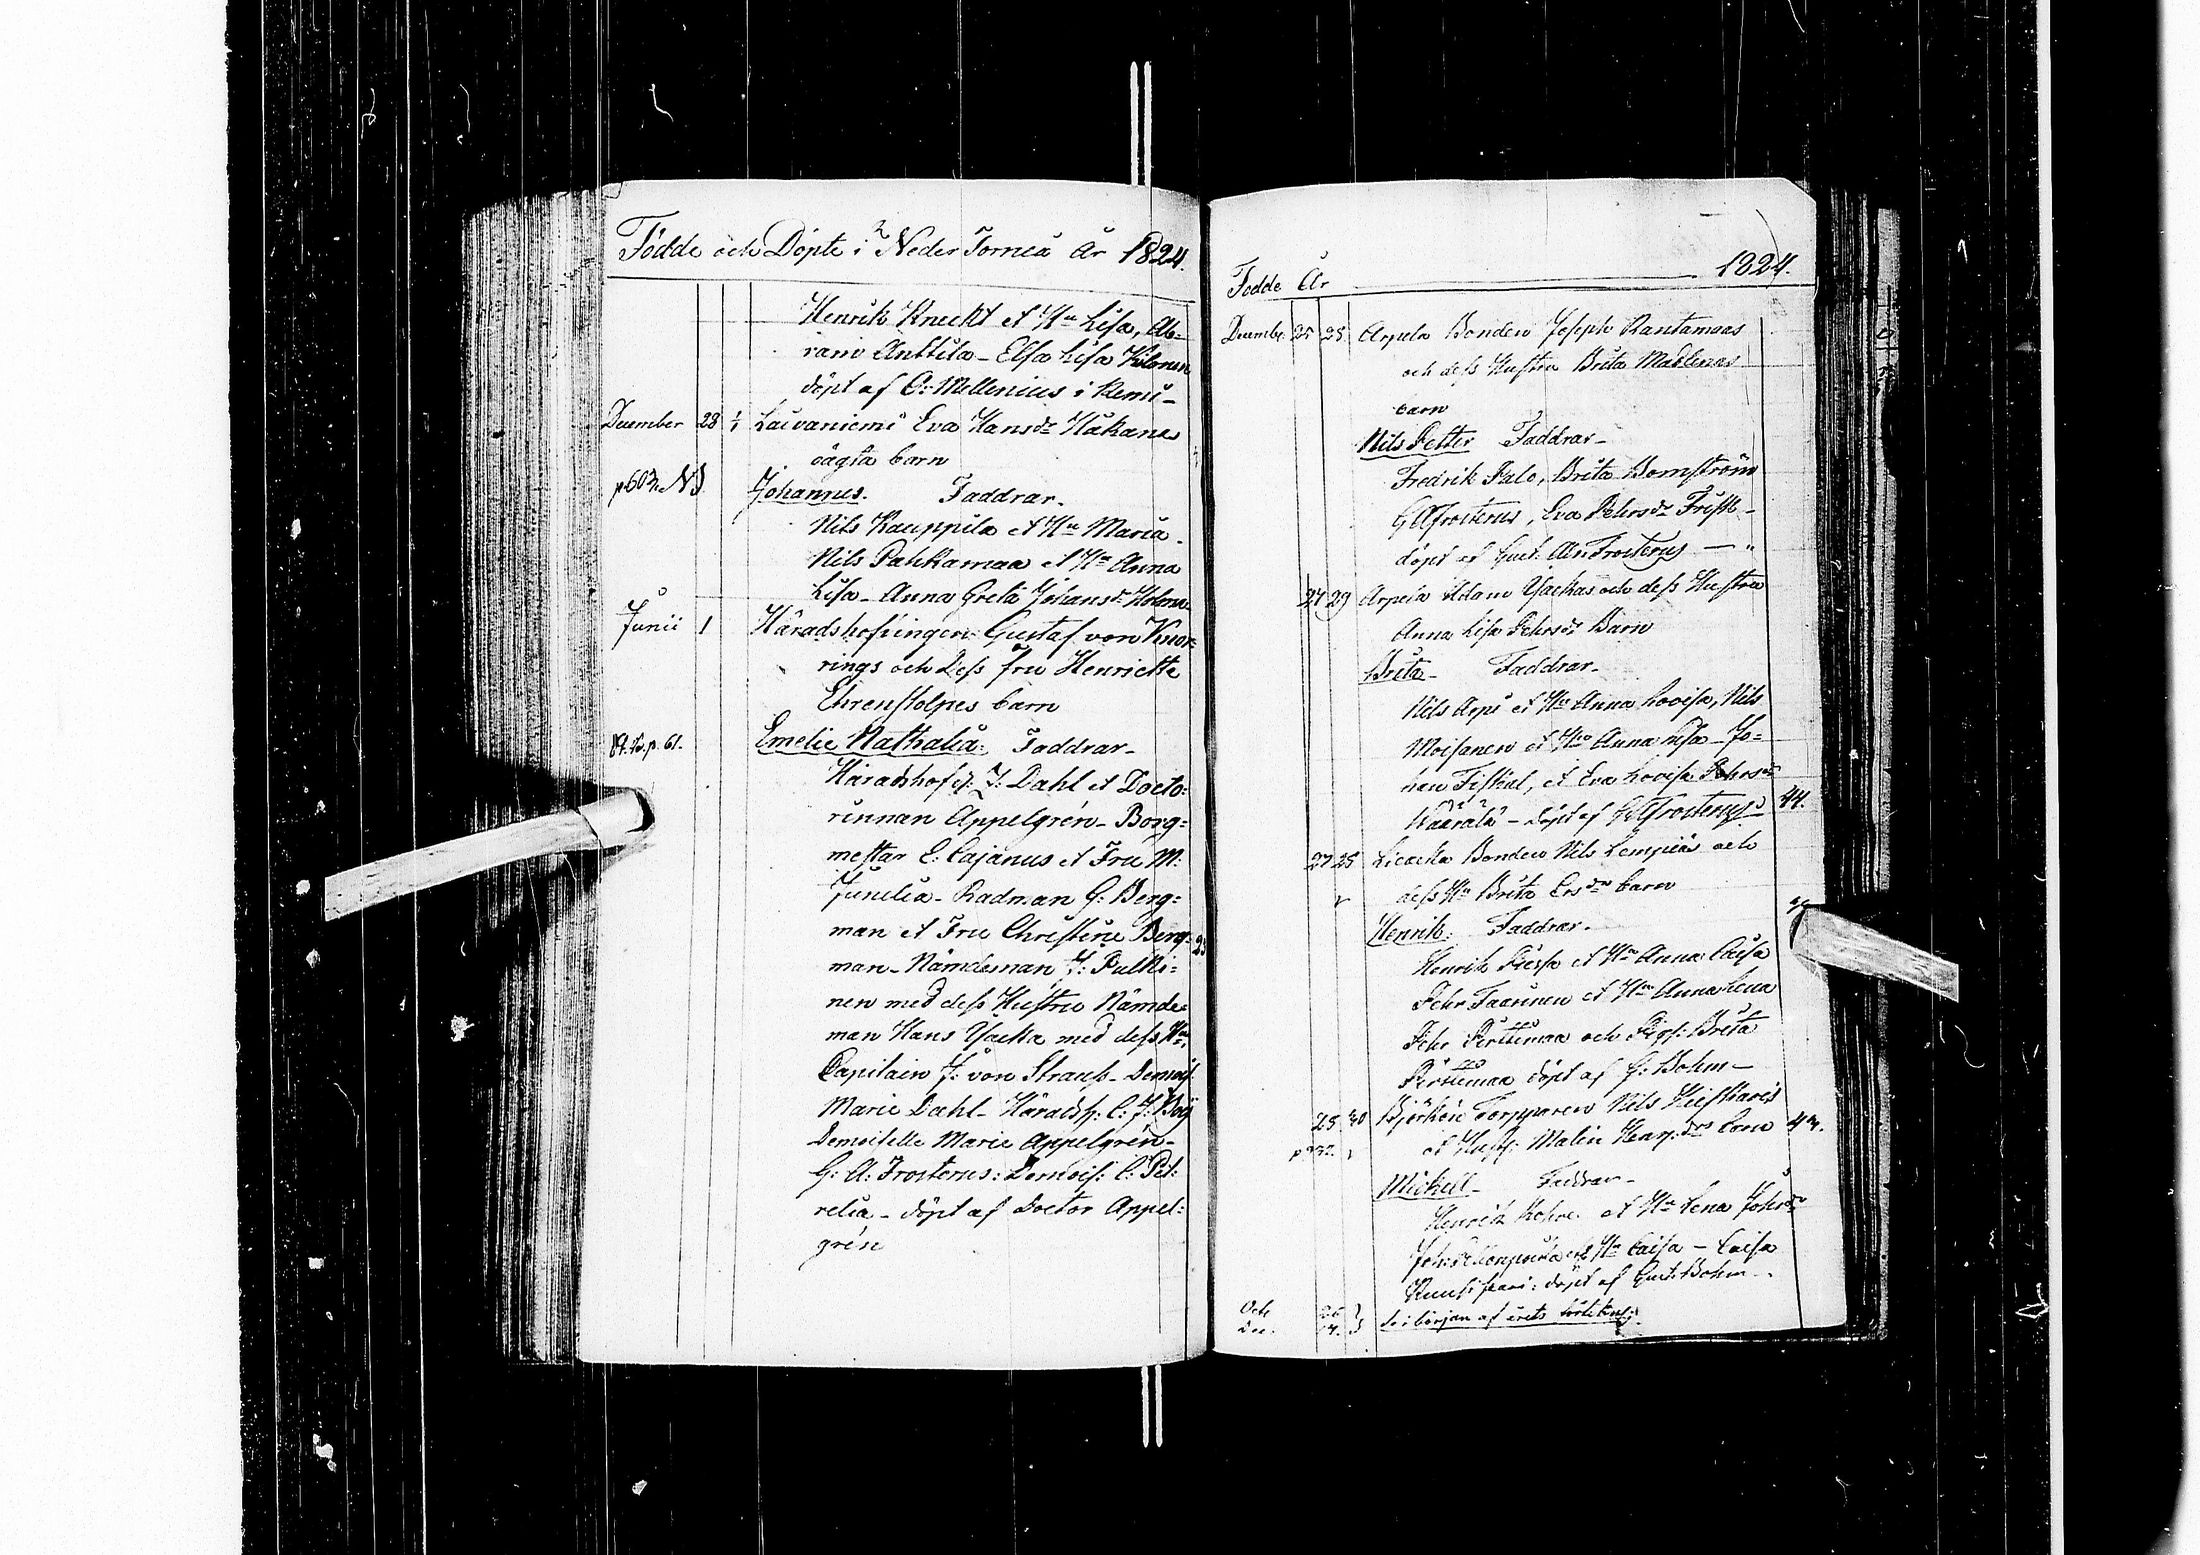 Födde och Döpte i Neder Torneå År 1824.
Henrik Kneckt et Hu Lisa, Ab=
ram Anttila - Elsa Lisa
döpt af O: Mellenius i Kemi -
December 28 1/1 Laivaniemi Eva Hansdr Håkanas
oägta barn
p. 603. Johannes. Faddrar.
Nils Kauppila et Hu Maria -
Nils Pahkamaa et Hu Anna
Lisa - Anna Greta Johansdr
Junii 1 Häradshöfdingen Gustaf von Knor=
rings och dess Fru Henriette
Ehrenstolpes barn
p. 61. Emelie Nathalia: Faddrar -
Häradshöf J: Dahl et Docto=
rinnan Appelgrén - Borg=
mestar C: Cajanus et Fru M:
Junelia - Rådman G: Berg=
man et Fru Christine Berg=
man - Nämdeman J: Pulki=
nen med dess Hustru Nämde=
man Hans Yacka med dess Hu
Capitain J: von Strauss - Demois
Marie Dahl - Häradsh: C: J:
Demoiselle Marie Appelgrén -
G: A: Frosterus: Demois: C: Pet=
relia - döpt af Doctor Appel=
grén
Födde År 1824.
Decemb. 25 25 Arpela Bonden Joseph Rantamaas
och dess Hustru Brita Madlenas
barn
Nils Petter Faddrar -
Fredrik Palo, Brita Bomström
G A Frosterus, Eva Pehrsdr
döpt af Gust. Ad. Frosterus -
27 29 Arpela Adam Yackas och dess Hustru
Anna Lisa Pehrsdr Barn
Brita - Faddrar -
Nils Arpi et Hu Anna Lovisa, Nils
Moisanen et Hu Anna Lisa - Jo=
han Fiskal, et Eva Lovisa Pehrsdr
Kaarala - döpt af G A Frosterus 44.
27 28 Liedacka Bonden Nils Lempiäs och
dess Hu Brita Ersdrs barn
Henrik. Faddrar.
Henrik Piessa et Hu Anna Caisa
Pehr Taarinen et Hu Anna Lena
Pehr Perttumaa och Pig: Brita
Perttumaa döpt af G: Bohm -
25 30 Björkön Torpparen Nils
et Hust: Malin Henr: drs barn 43.
Mickel - Faddrar -
Henrik et Hu Lena Johsdr
et Hu Caisa - Caisa
döpt af Gust: Bohm -
Octb 26
Dec. 14. } Se i början af årets